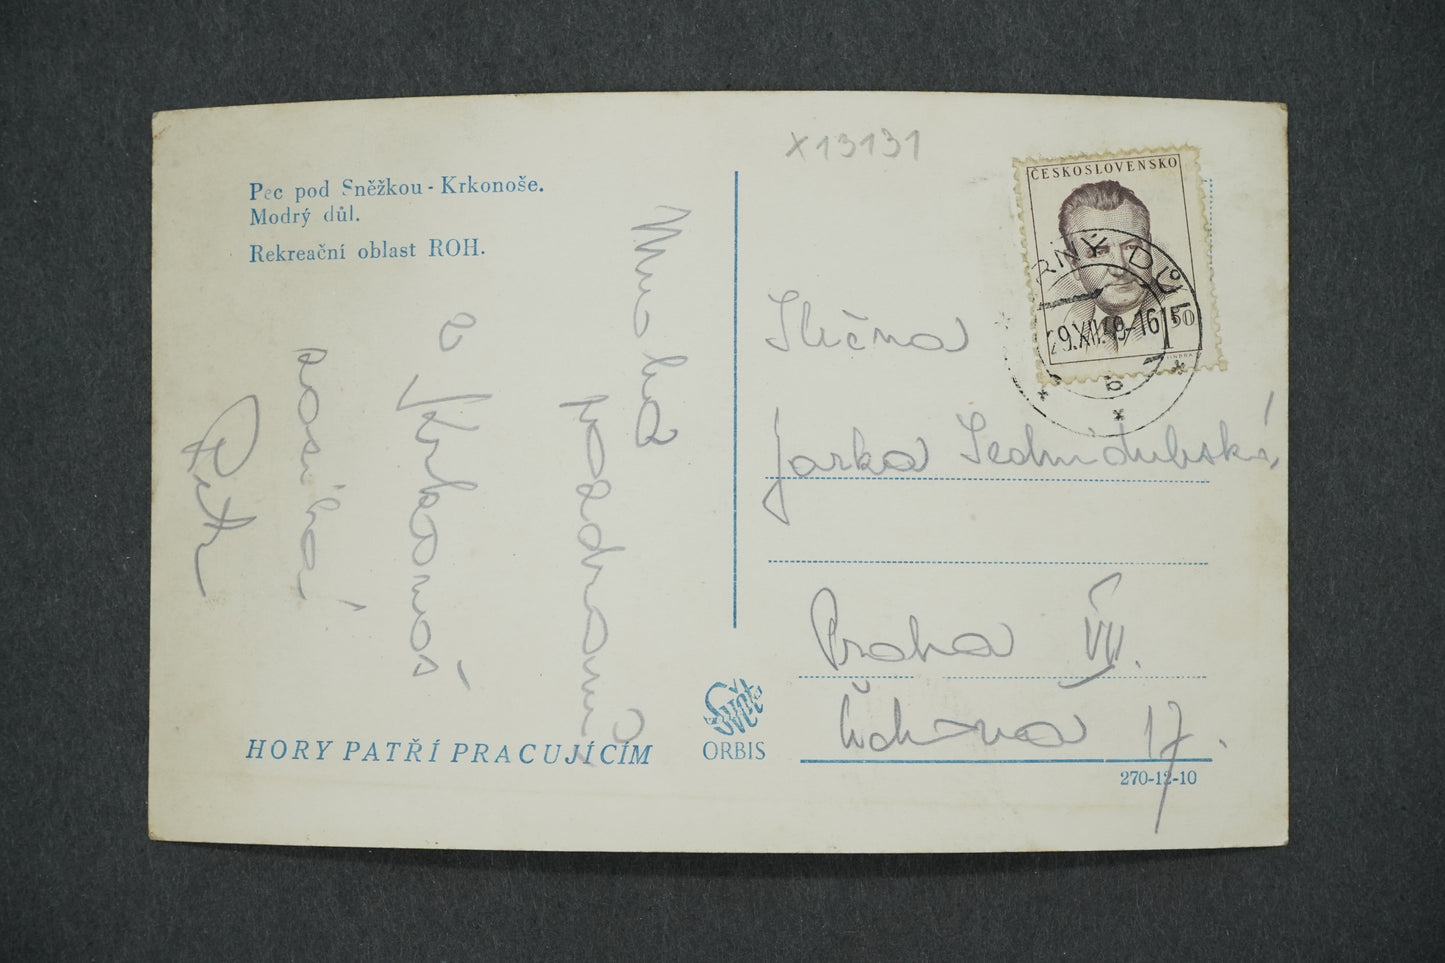 Pec pod Sněžkou - Krkonoše.
Modrý důl.
Rekreační oblast ROH.
Mnoho
pozdravů
z Krkonoš
posílá
Petr
HORY PATŘÍ PRACUJÍCÍM
Svět
ORBIS
X13131
ČESKOSLOVENSKO
1 50
RNÝ DŮL
29.XII.49-16
Slečna
Jarka Sedmidubská,
Praha VII.
17.
270-12-10